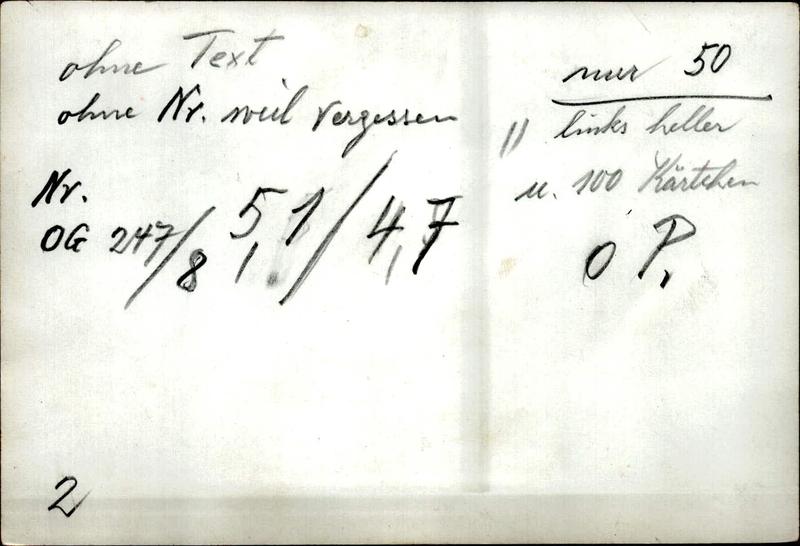 ohne Text
ohne Nr. weil vergessen
Nr.
OG 247/8 5,1/4,7
nur 50
" links heller
u. 100 Kärtchen
o P.
2